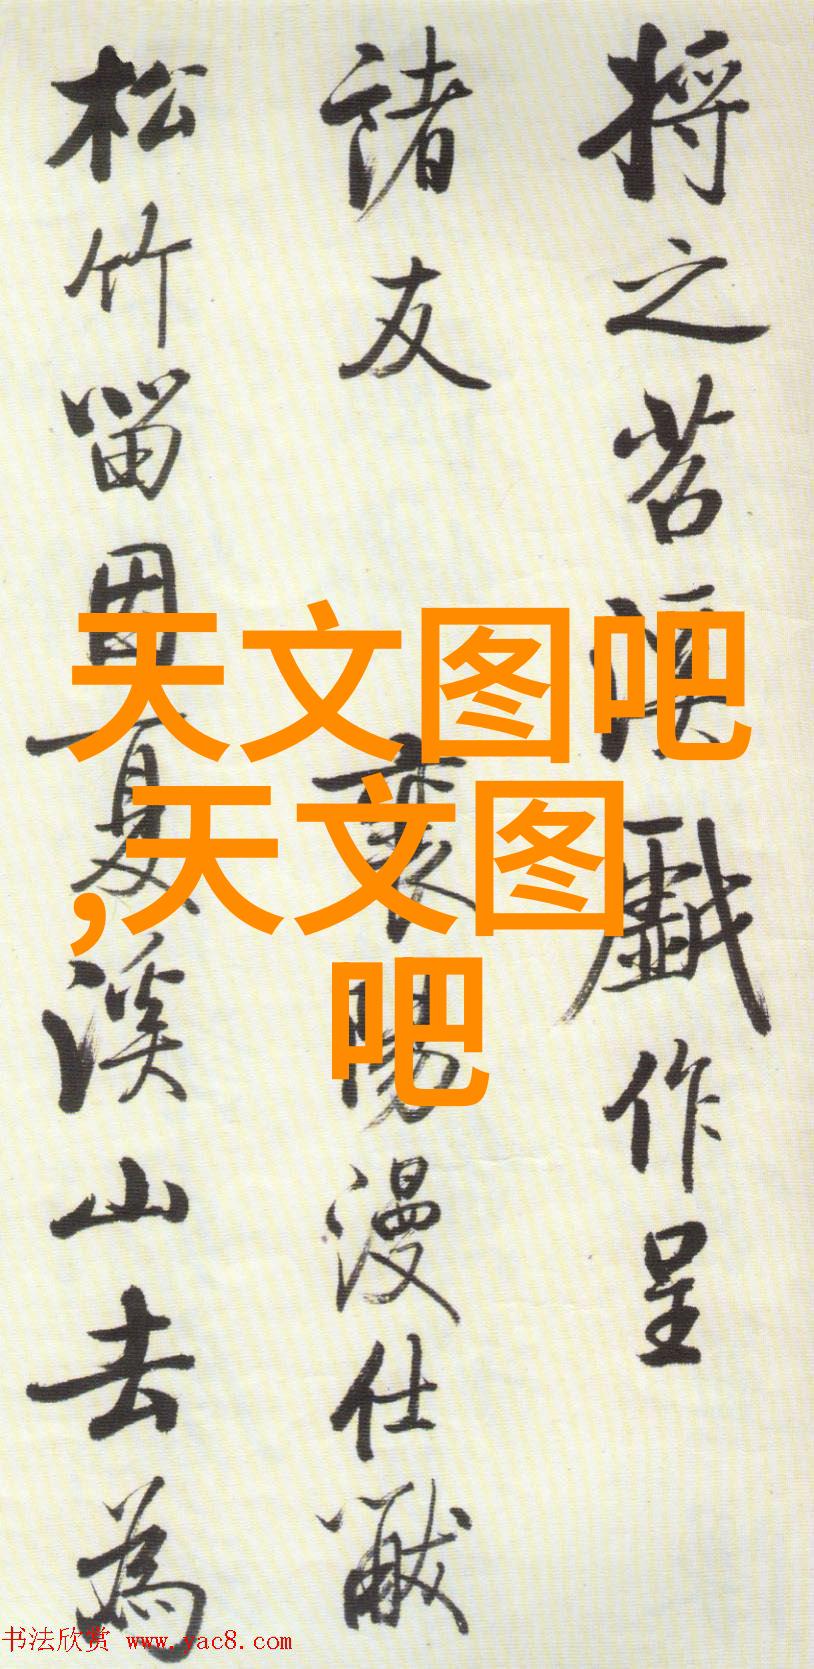 将之苕溪戲作呈
諸友 襄陽漫仕黻
松竹留因夏溪山去為
天文图吧
,天文图
吧
书法欣赏 www.yac8.com